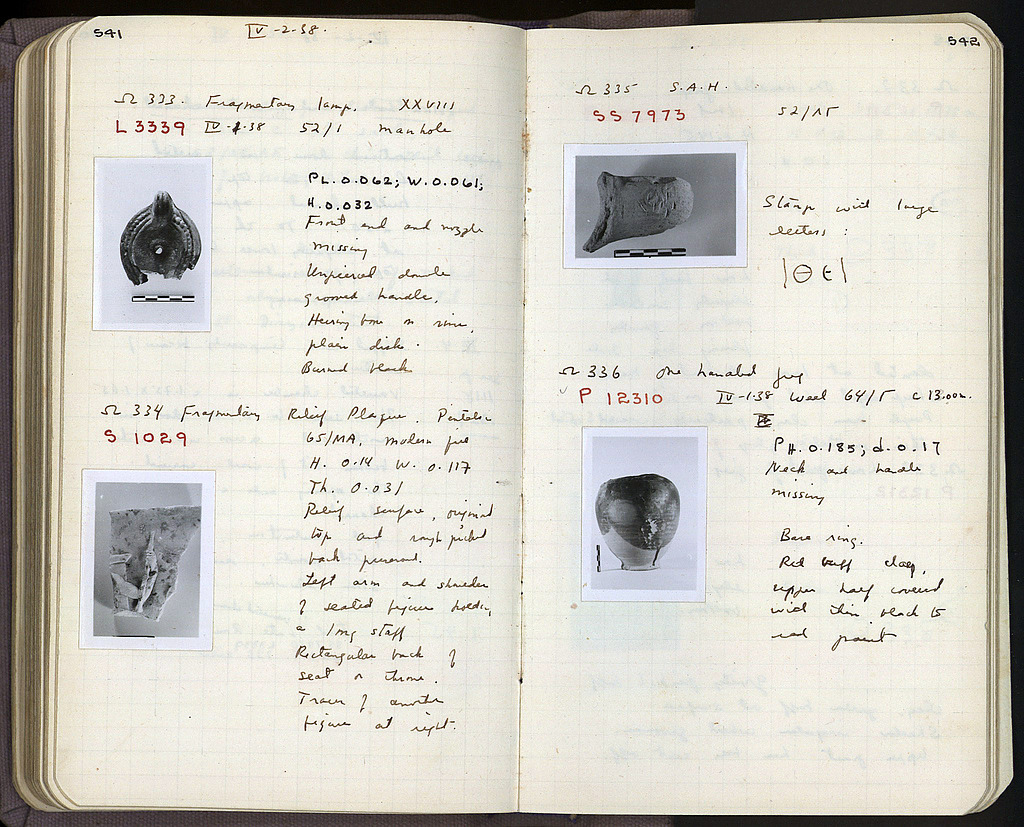 541
IV -2-38.
Ω 333. Fragmentary lamp. XXVIII
L 3339 IV-1-38 52/1 manhole
PL. 0.062; W. 0.061;
H. 0.032
Front end and nozzle
missing
Unpierced double
grooved handle.
Herring bone on rim,
plain disk.
Burned black
Ω 334 Fragmentary Relief Plaque. Pentelic
S 1029 65/ΜΑ, modern fill
H. 0.14 W. 0.117
Th. 0.031
Relief surface, original
top and rough picked
back preserved.
Left arm and shoulder
of seated figure holding
a long staff
Rectangular back of
seat or throne.
Traces of another
figure at right.
542
Ω 335 S.A.H.
SS 7973 52/ΛΓ
Stamp with large
letters:
|Θϵ|
Ω 336 One handled jug
P 12310 IV-1-38 Well 64/Γ c 13.00m.
PH. 0.185; d. 0.17
Neck and handle
missing
Base ring.
Red buff clay,
upper half covered
with thin black to
red paint